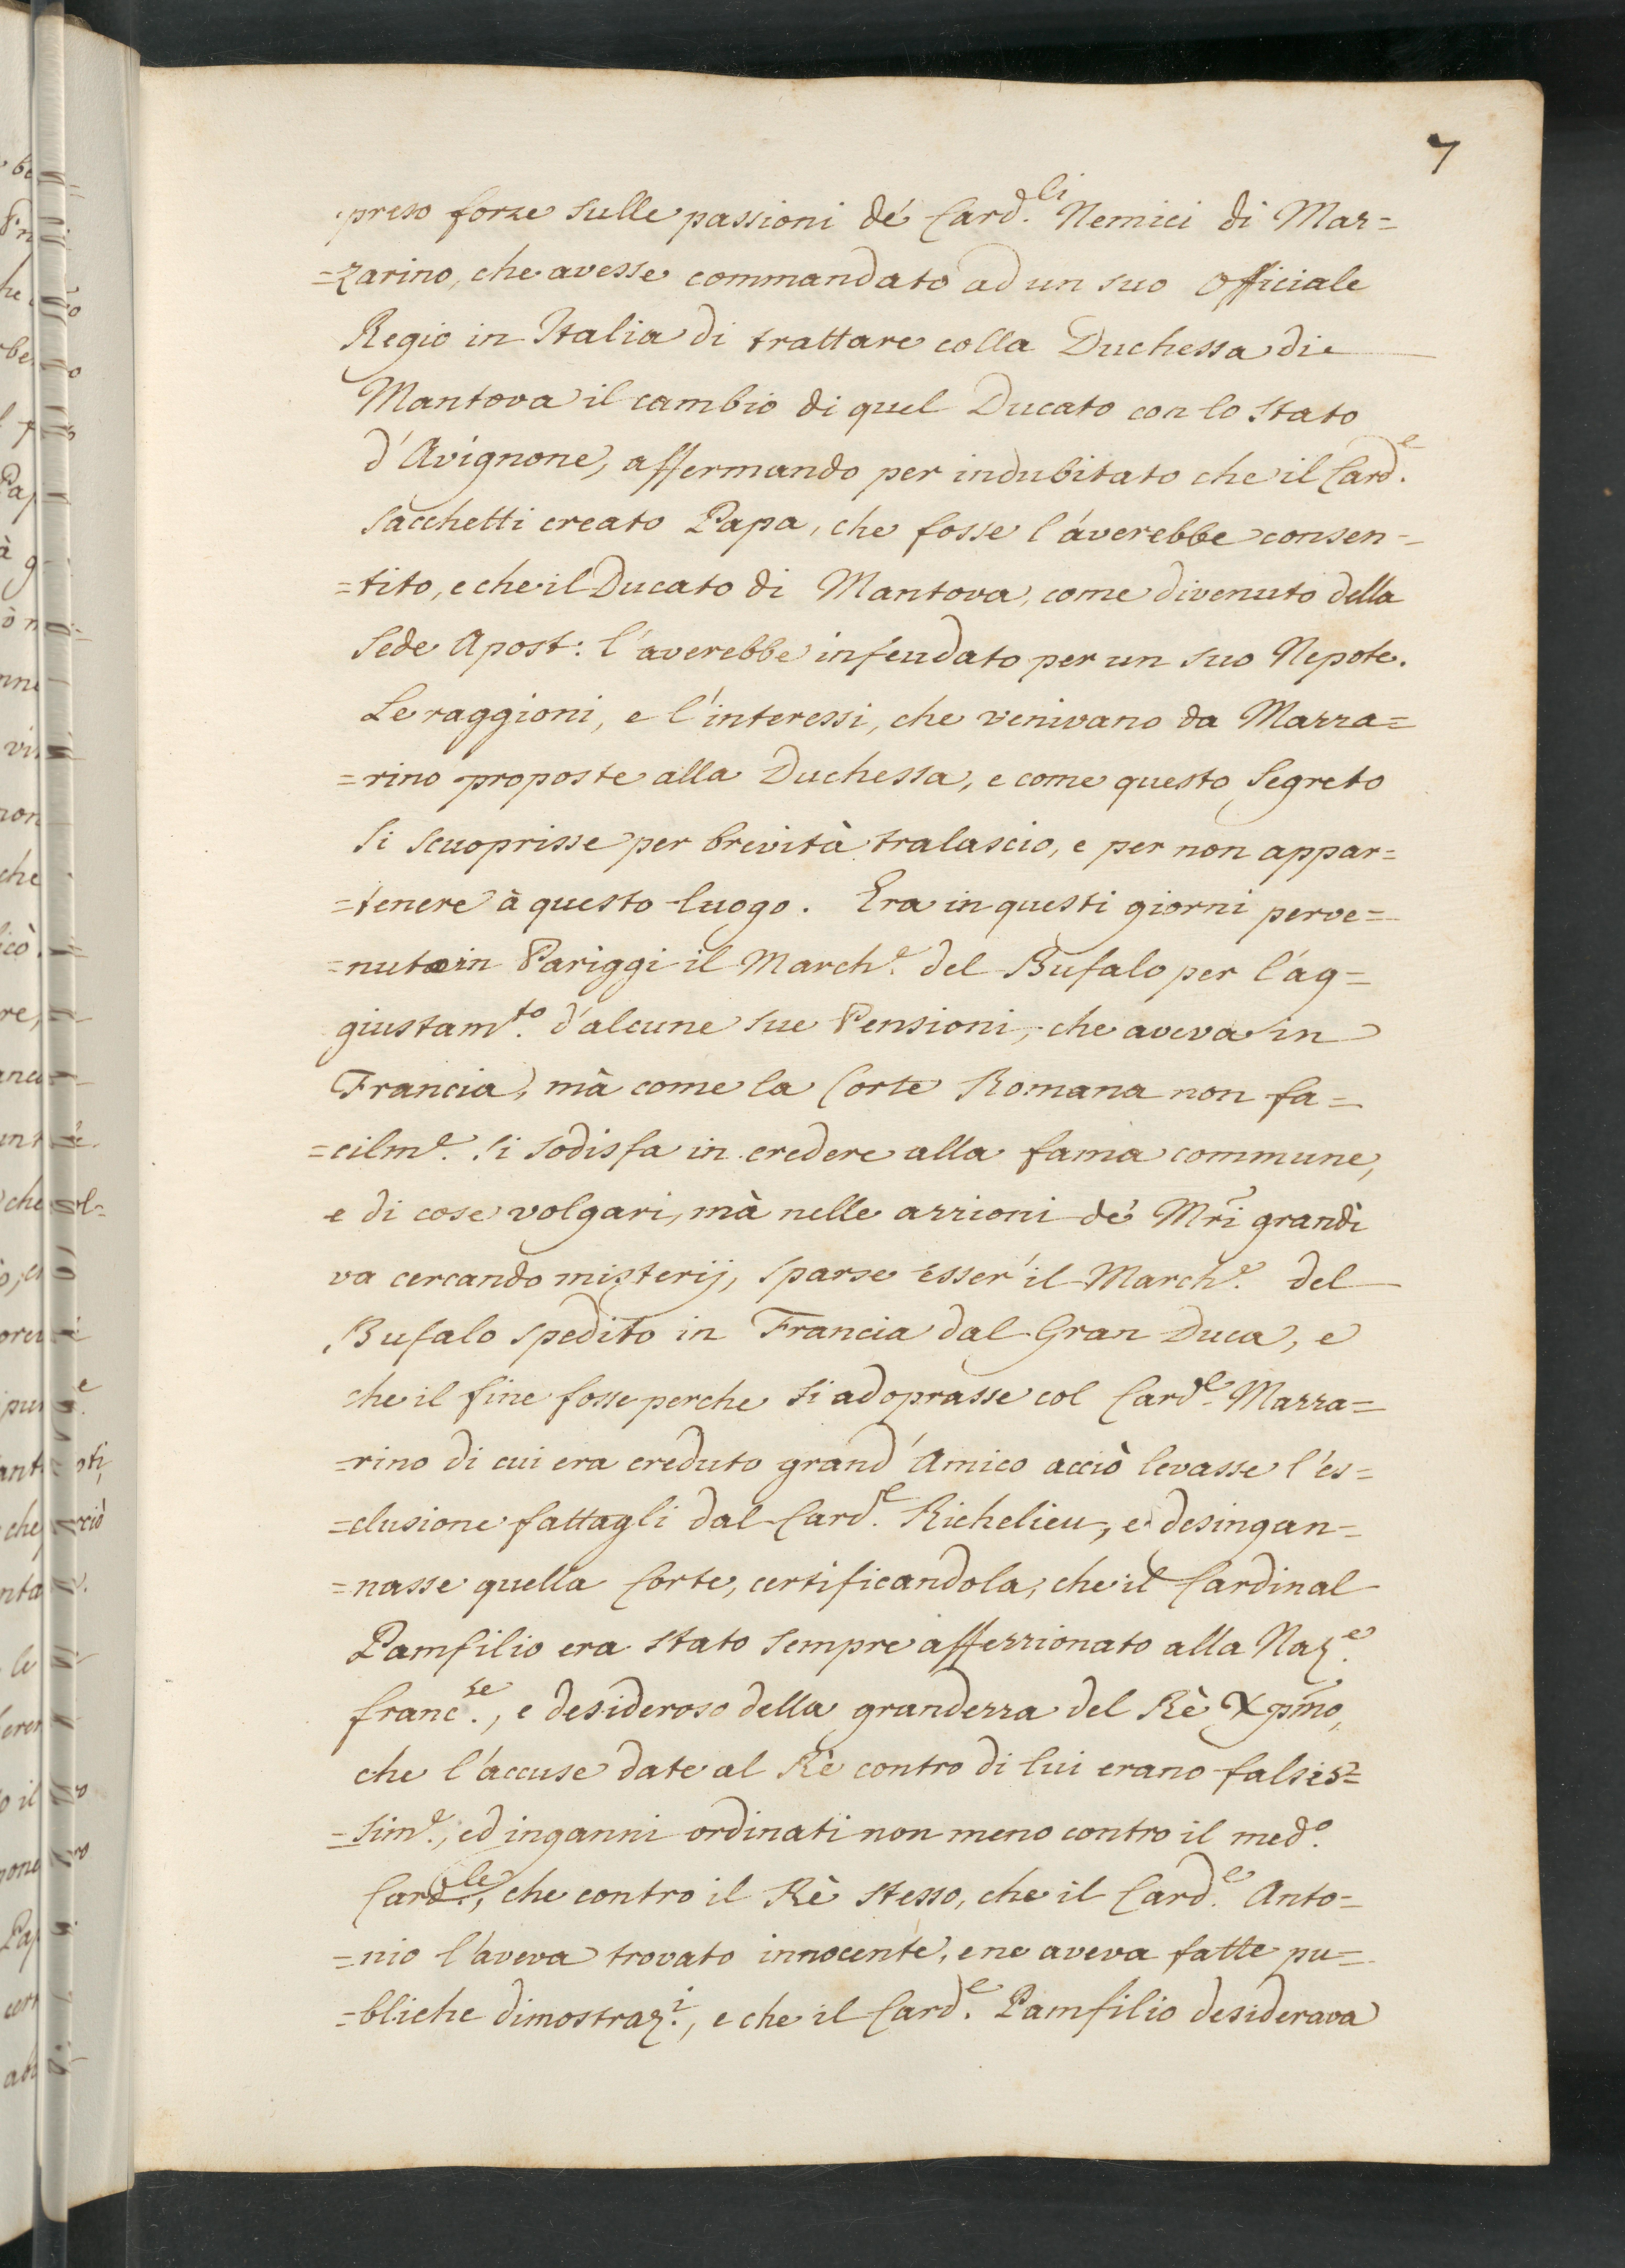 7
preso forze sulle passioni de' Card.li Nemici di Maz=
=zarino, che avesse commandato ad un suo Officiale
Regio in Italia di trattare colla Duchessa di
Mantova il cambio di quel Ducato con lo Stato
d'Avignone, affermando per indubitato che il Card.e
Sacchetti creato Papa, che fosse l'averebbe consen=
=tito, e che il Ducato di Mantova, come divenuto della
Sede Apost: l'averebbe infeudato per un suo Nepote.
Le raggioni, e l'interessi, che venivano da Mazza=
=rino proposte alla Duchessa, e come questo Segreto
si scuoprisse per brevità tralascio, e per non appar=
=tenere à questo luogo. Era in questi giorni perve=
=nuto in Pariggi il March.e del Bufalo per l'ag=
giustam.to d'alcune sue Pensioni, che aveva in
Francia, mà come la Corte Romana non fa=
=cilm.e si sodisfa in credere alla fama commune,
e di cose volgari, mà nelle azzioni de' Mrĩ grandi
va cercando misterij, sparse esser'il March.e del
Bufalo spedito in Francia dal Gran Duca, e
che il fine fosse perche si adoprasse col Card.e Mazza=
=rino di cui era creduto grand'Amico acciò levasse l'es=
=clusione fattagli dal Card.e Richelieu, e desingan=
=nasse quella Corte, certificandola, che il Cardinal
Pamfilio era stato sempre affezzionato alla Naz.e
franc.se, e desideroso della grandezza del Rè Xpm̃o,
che l'accuse date al Rè contro di lui erano falsis=
=sim.e, ed inganni ordinati non meno contro il med.o
Card.le, che contro il Rè stesso, che il Card.e Anto=
=nio l'aveva trovato innocente, e ne aveva fatte pu=
=bliche dimostraz.i, e che il Card.e Pamfilio desiderava